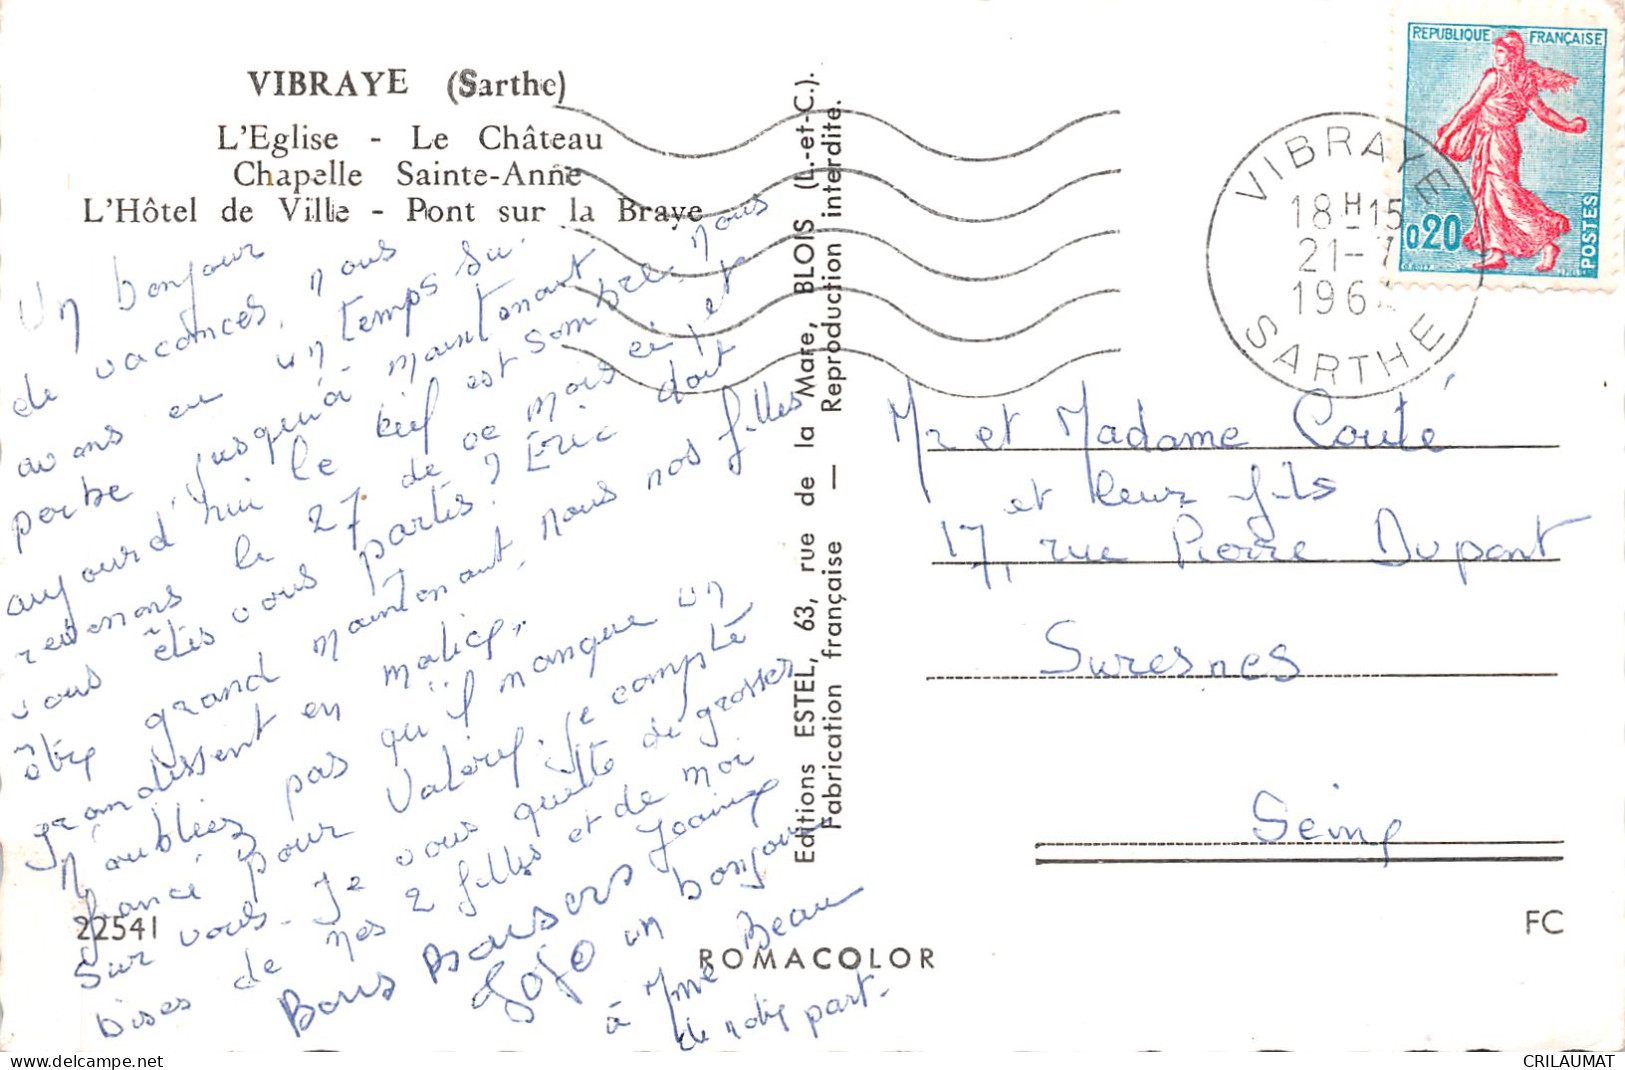 VIBRAYE (Sarthe)
L'Eglise - Le Château
Chapelle Sainte-Anne
L'Hôtel de Ville - Pont sur la Braye
Un bonjour
de vacances, nous
avons eu un temps su-
perbe, jusqu'à maintenant
aujourd'hui le ciel est sombre. nous
revenons le 27 de ce mois ci, et
vous êtes vous partis? Eric doit
être grand maintenant, nous nos filles
grandissent en malice,
N'oubliez pas qu'il manque un
fiancé pour Valérie, je compte
sur vous. Je vous quitte de grosses
bises de mes 2 filles et de moi
Bons Baisers Jeanine
Jojo un bonjour
à Mme Beau
de notre part.
22541
ROMACOLOR
FC
Editions ESTEL, 63, rue de la Mare, BLOIS (L.-et-C.).
Fabrication française — Reproduction interdite.
REPUBLIQUE FRANÇAISE
0,20
POSTES
VIBRAYE
18H15
21-7
196
SARTHE
Mr et Madame Couté
et leurs fils
17, rue Pierre Dupont
Suresnes
Seine
delcampe.net
CRILAUMAT